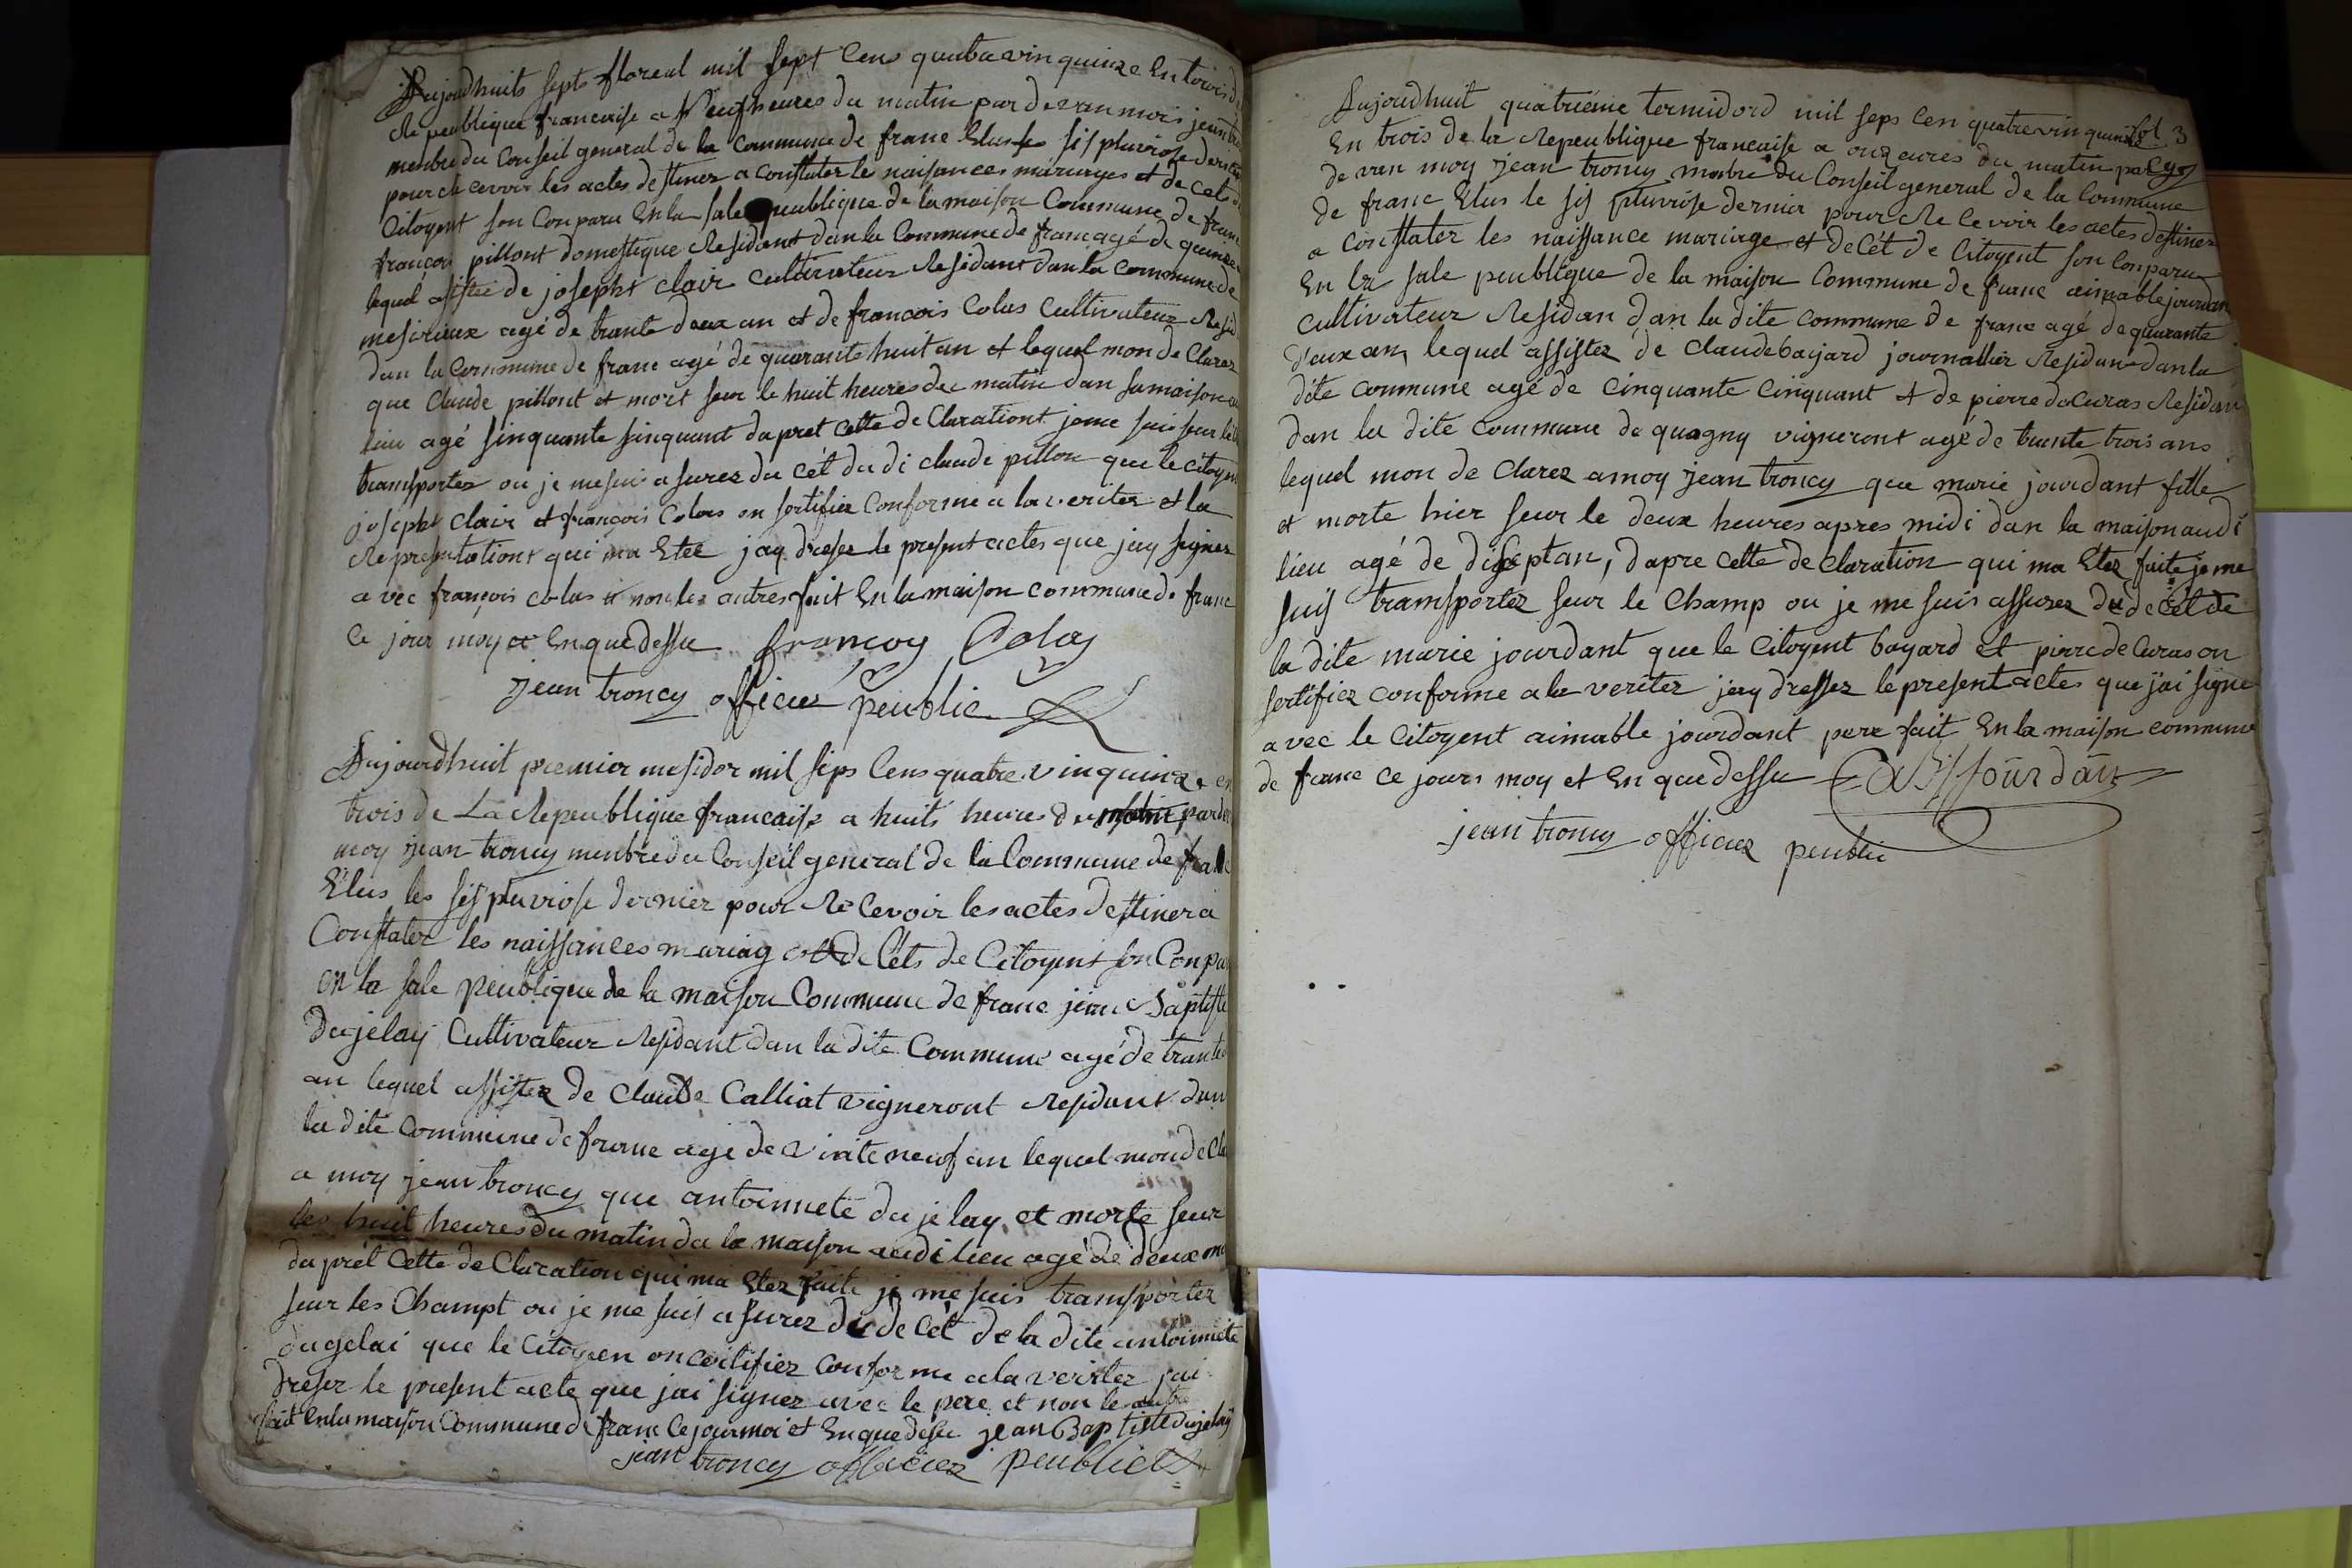 Aujoudhuits septs floreal mil sept Cens quatravin quinze En trois de
Republique francaise a Neuf heures du matin par devan mois jean
menbre du Conseil general de la Commune de franc Elus les sis pluviose dernier
pour Recevoir les actes destinez a constater le naisances mariages et decets de
Citoyent son Conparu En la sale peublique de la maison Commune de franc
françoy pillont domestique Residant dan la Commune de franc agé de quinze
lequel asistée de josepht clair cultivateur Residant dan la commune de
mesirieux agé de trante deux an et de francois Colas Cultivateur Resid
dan la Commune de franc agé de quarante huit an et lequel mon de Clarez
que Claude pillont et mort seur le huit heures du matin dan sa maison au
lieu agé sinquante sinquant dapret cette de Clarationt jeme suis seur le
transporter ou je me suis asurez du cét du di claude pillon que le citoyen
josepht Clair et françois Colas on sertifiez Conforme a la veritez et la
Representationt qui ma Etée jay dresez le present actes que jay signez
avec françois colas et non les autres fait En la maison commune de franc
Ce jour moy et En que dessu francoy Colas
jean troncy officier peublic
Aujourdhuit premier mesidor mil seps Cens quatre vin quinze en
trois de La Republique francaise a huits heures du matin par de
moy jean troncy menbre du Conseil general de la Commune de franc
Elus les sis pluviose dernier pour Recevoir les actes destiner a
Constater les naissances mariag et decets de Citoyent son Conpa
en la sale peublique de la maison Commune de franc jean Baptiste
Dujelay Cultivateur Residant dan la dite Commune agé de trante
an lequel assistez de Claude Calliat vigneront Residant dan
la dite Commune de franc agé de vinte neuf an lequel mon de cla
a moy jean troncy que antoinnete dujelay et morte seur
les huit heures du matin da la maison audi lieu agé de deux mo
da prêt Cette de Claration qui ma Etez faite je me suis transporter
seur les Champt ou je me suis asurez du de Cét de la dite antoinnete
dugelai que le Citoyen on certifiez Conforme a la veritez jai
dresez le present acte que jai signez avec le pere et non le autre
fait En la maison Commune de franc Ce jour moi et En que desu jean Baptiste dujelay
jean troncy officiez peublic
fol 3
Aujoudhuit quatriéme termidord mil seps Cen quatre vin quinze
En trois de la Republique francaise a onz eures du matin par
de van moy jean troncy menbre du Conseil general de la Commune
de franc Elus le sis pluviose dernier pour Re Cevoir les actes destinez
a Constater les naissance mariage et decét de Citoyent son Conparu
En la sale peublique de la maison Commune de franc aimable jourdan
Cultivateur Residan dan la dite Commune de franc agé de quarante
deux an, lequel assistez de Claude bayard journallier Residan dan la
dite commune agé de Cinquante Cinquant et de pierre de Curas Residan
dan la dite commune de quagny vigneront agé de trante trois ans
lequel mon de Clarez a moy jean troncy que marie jourdant fille
et morte hier seur le deux heures apres midi dan la maison audi
lieu agé de diseptan, dapre Cette de Claration qui ma Etez faite je me
suis transportez seur le Champ ou je me suis assurez du de cét de
la dite marie jourdant que le Citoyent bayard et pierre de Curas on
sertifiez conforme a la veritez jay dressez le present actes que jai signe
avec le Citoyent aimable jourdant pere fait En la maison commune
de franc ce jours moy et En que dessu Jourdan
jean troncy officiez peublic